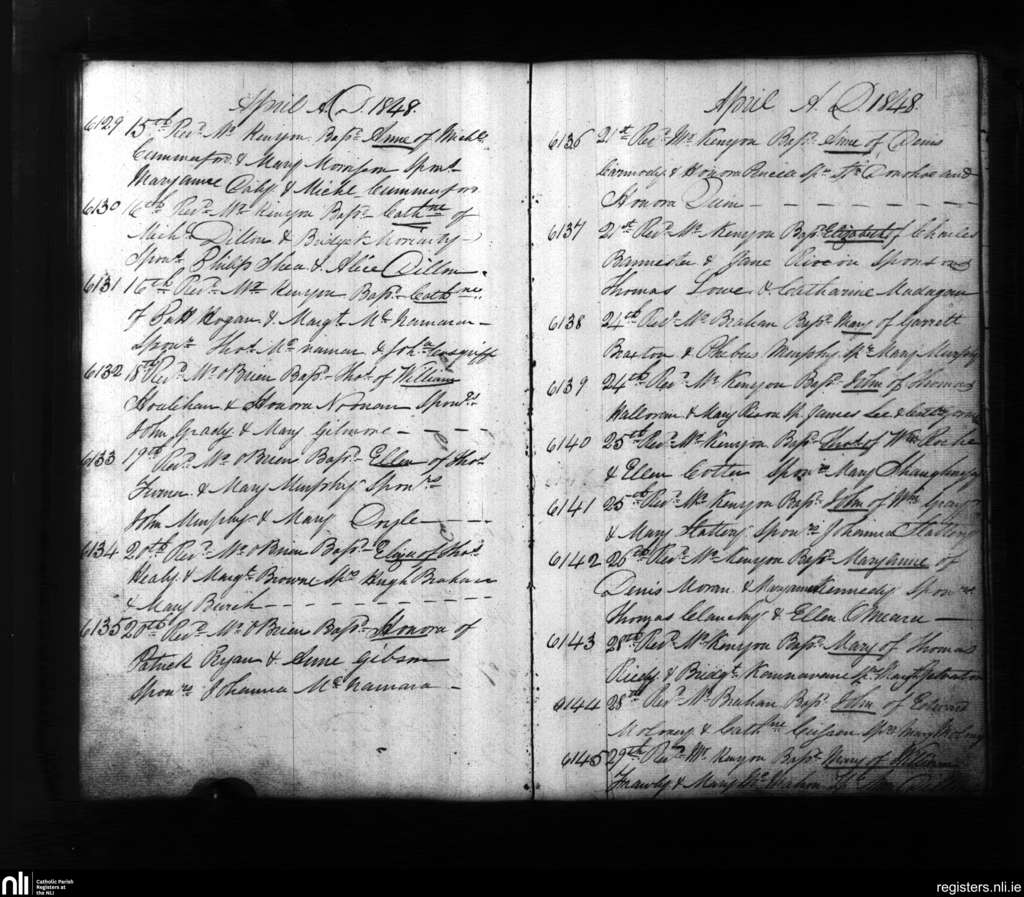 April A.D. 1848.
6129 15th Revd. Mr. Kenyon Bapd. Anne of Michl.
Cummuford & Mary Morrison Sponrs.
Maryanne Caly & Michl. Cummuford
6130 16th Revd. Mr. Kenyon Bapd. Cathne of
Michl. Dillon & Bridget Moriarty
Sponrs. Philip Shea & Alice Dillon.
6131 16th Revd. Mr. Kenyon Bapd. Cathne.
of Patt Hogan & Margt. McNamara
Sponrs. Thos. McNamar & Johna. Cosgriff
6132 18th Revd. Mr. O'Brien Bapd. Thos. of William
Houlihan & Honora Noonan Sponrs.
John Grady & Mary Gilmore
6133 19th Revd. Mr. O'Brien Bapd. Ellen of Thos.
& Mary Murphy Sponrs
John Murphy & Mary Doyle
6134 20th Revd. Mr. O'Brien Bapd. Eliza of Thos.
Healy & Margt. Browne Sprs Hugh Brahan
& Mary Burch
6135 20th Revd. Mr. O'Brien Bapd. Honora of
Patrick Ryan & Anne Gibson
Sponrs Johanna McNamara
April A.D 1848.
6136 21st Revd. Mr. Kenyon Bapd. Anne of Denis
Carmody & Honora Sprs Donohoe and
Honora
6137 21st Revd. Mr. Kenyon Bapd. Elizabeth of Charles
Bannester & Jane Sponsors
Thomas Lowe & Catharine Madagan
6138 24th Revd. Mr. Brahan Bapd. Mary of Garrett
Braxton & Phebus Murphy Sp. Mary Murphy
6139 24th Revd. Mr. Kenyon Bapd. John of Thomas
Halloran & Mary Sp. James Lee &
6140 25th Revd. Mr. Kenyon Bapd. Thos. of Wm. Roche
& Ellen Cotter Sponrs Mary Shaughnessy
6141 25th Revd. Mr. Kenyon Bapd. John of Wm. Gray
& Mary Slattery Sponrs Johanna Slattery
6142 26th Revd. Mr. Kenyon Bapd. Maryanne of
Denis Moran & Maryanne Kennedy Sponrs
Thomas Clanchy & Ellen O'Meara
6143 28th Revd. Mr. Kenyon Bapd. Mary of Thomas
Reidy & Bridgt. Sp.
6144 28th Revd. Mr. Brahan Bapd. John of Edward
Moloney & Cathne Sprs Mary Molony
6145 29th Revd. Mr. Kenyon Bapd. Mary of William
Frawly & Mary McMahon Sp.
nli Catholic Parish
Registers at
the NLI
registers.nli.ie